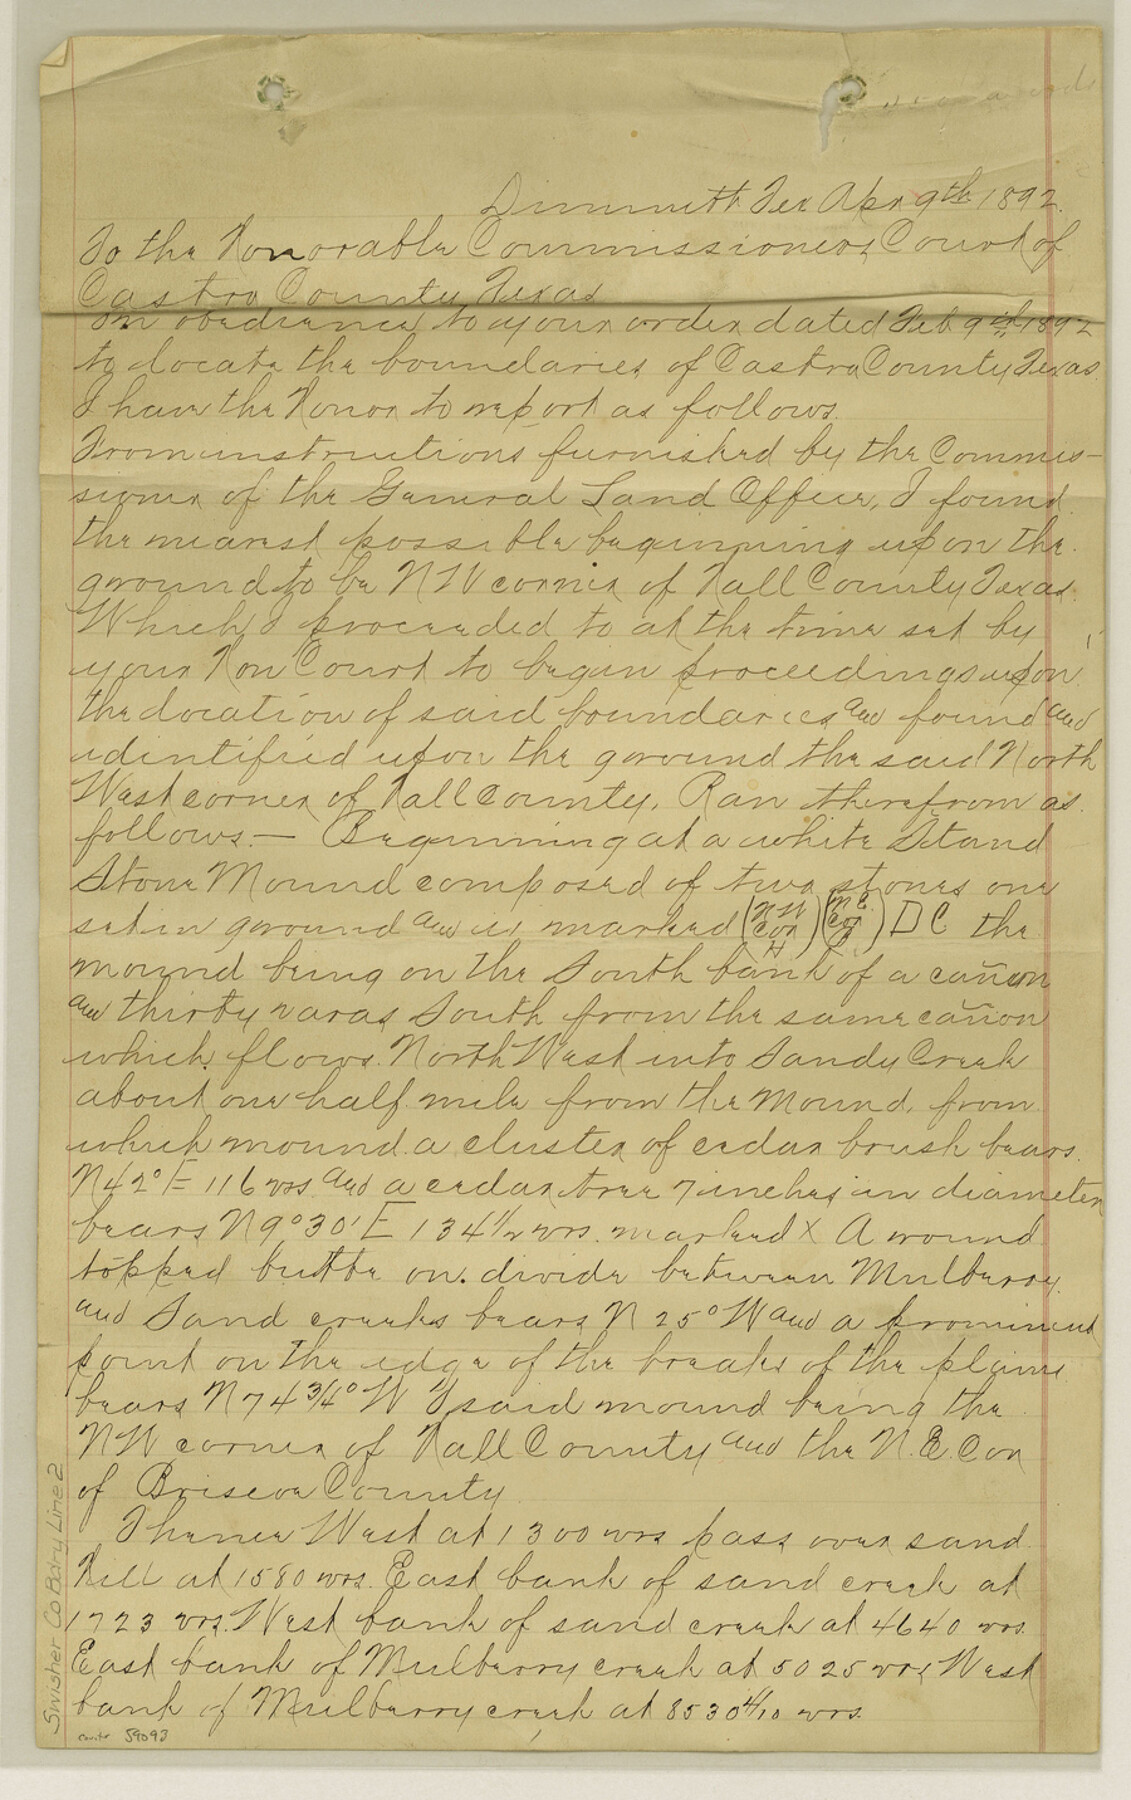 Dimmitt Tex Apr 9th 1892.
To the Honorable Commissioners Court of
Castro County Texas
In obedience to your order dated Feb 9th 1892
to locate the boundaries of Castro County Texas.
I have the honor to report as follows.
From instructions furnished by the Commis-
sioner of the General Land Office, I found
the nearest possible beginning upon the
ground to be N W corner of Hall County Texas.
Which I proceeded to at the time set by
your Hon Court to begin proceedings upon
the location of said boundaries and found and
identified upon the ground the said North
West corner of Hall County. Ran therefrom as
follows.— Beginning at a white Sand
Stone Mound composed of two stones one
set in ground and is marked (N W Cor H) (N.E. Cor B) D C the
mound being on the South bank of a cañon
and thirty varas South from the same cañon
which flows North West into Sandy Creek
about one half mile from the Mound, from
which mound a cluster of cedar brush bears
N 42° E 116 vrs. and a cedar tree 7 inches in diameter
bears N 9° 30' E 134 1/2 vrs. marked X A round
topped butte on divide between Mulberry
and Sand creeks bears N 25° W and a prominent
point on the edge of the breaks of the plains
bears N 74 3/4° W said mound being the
N W corner of Hall County and the N. E. Cor
of Briscoe County
Thence West at 1300 vrs pass over sand
hill at 1580 vrs. East bank of sand creek at
1723 vrs. West bank of sand creek at 4640 vrs.
East bank of Mulberry creek at 5025 vrs West
bank of Mulberry creek at 8530 4/10 vrs.
Swisher Co Bdry Line 2
counter 59093